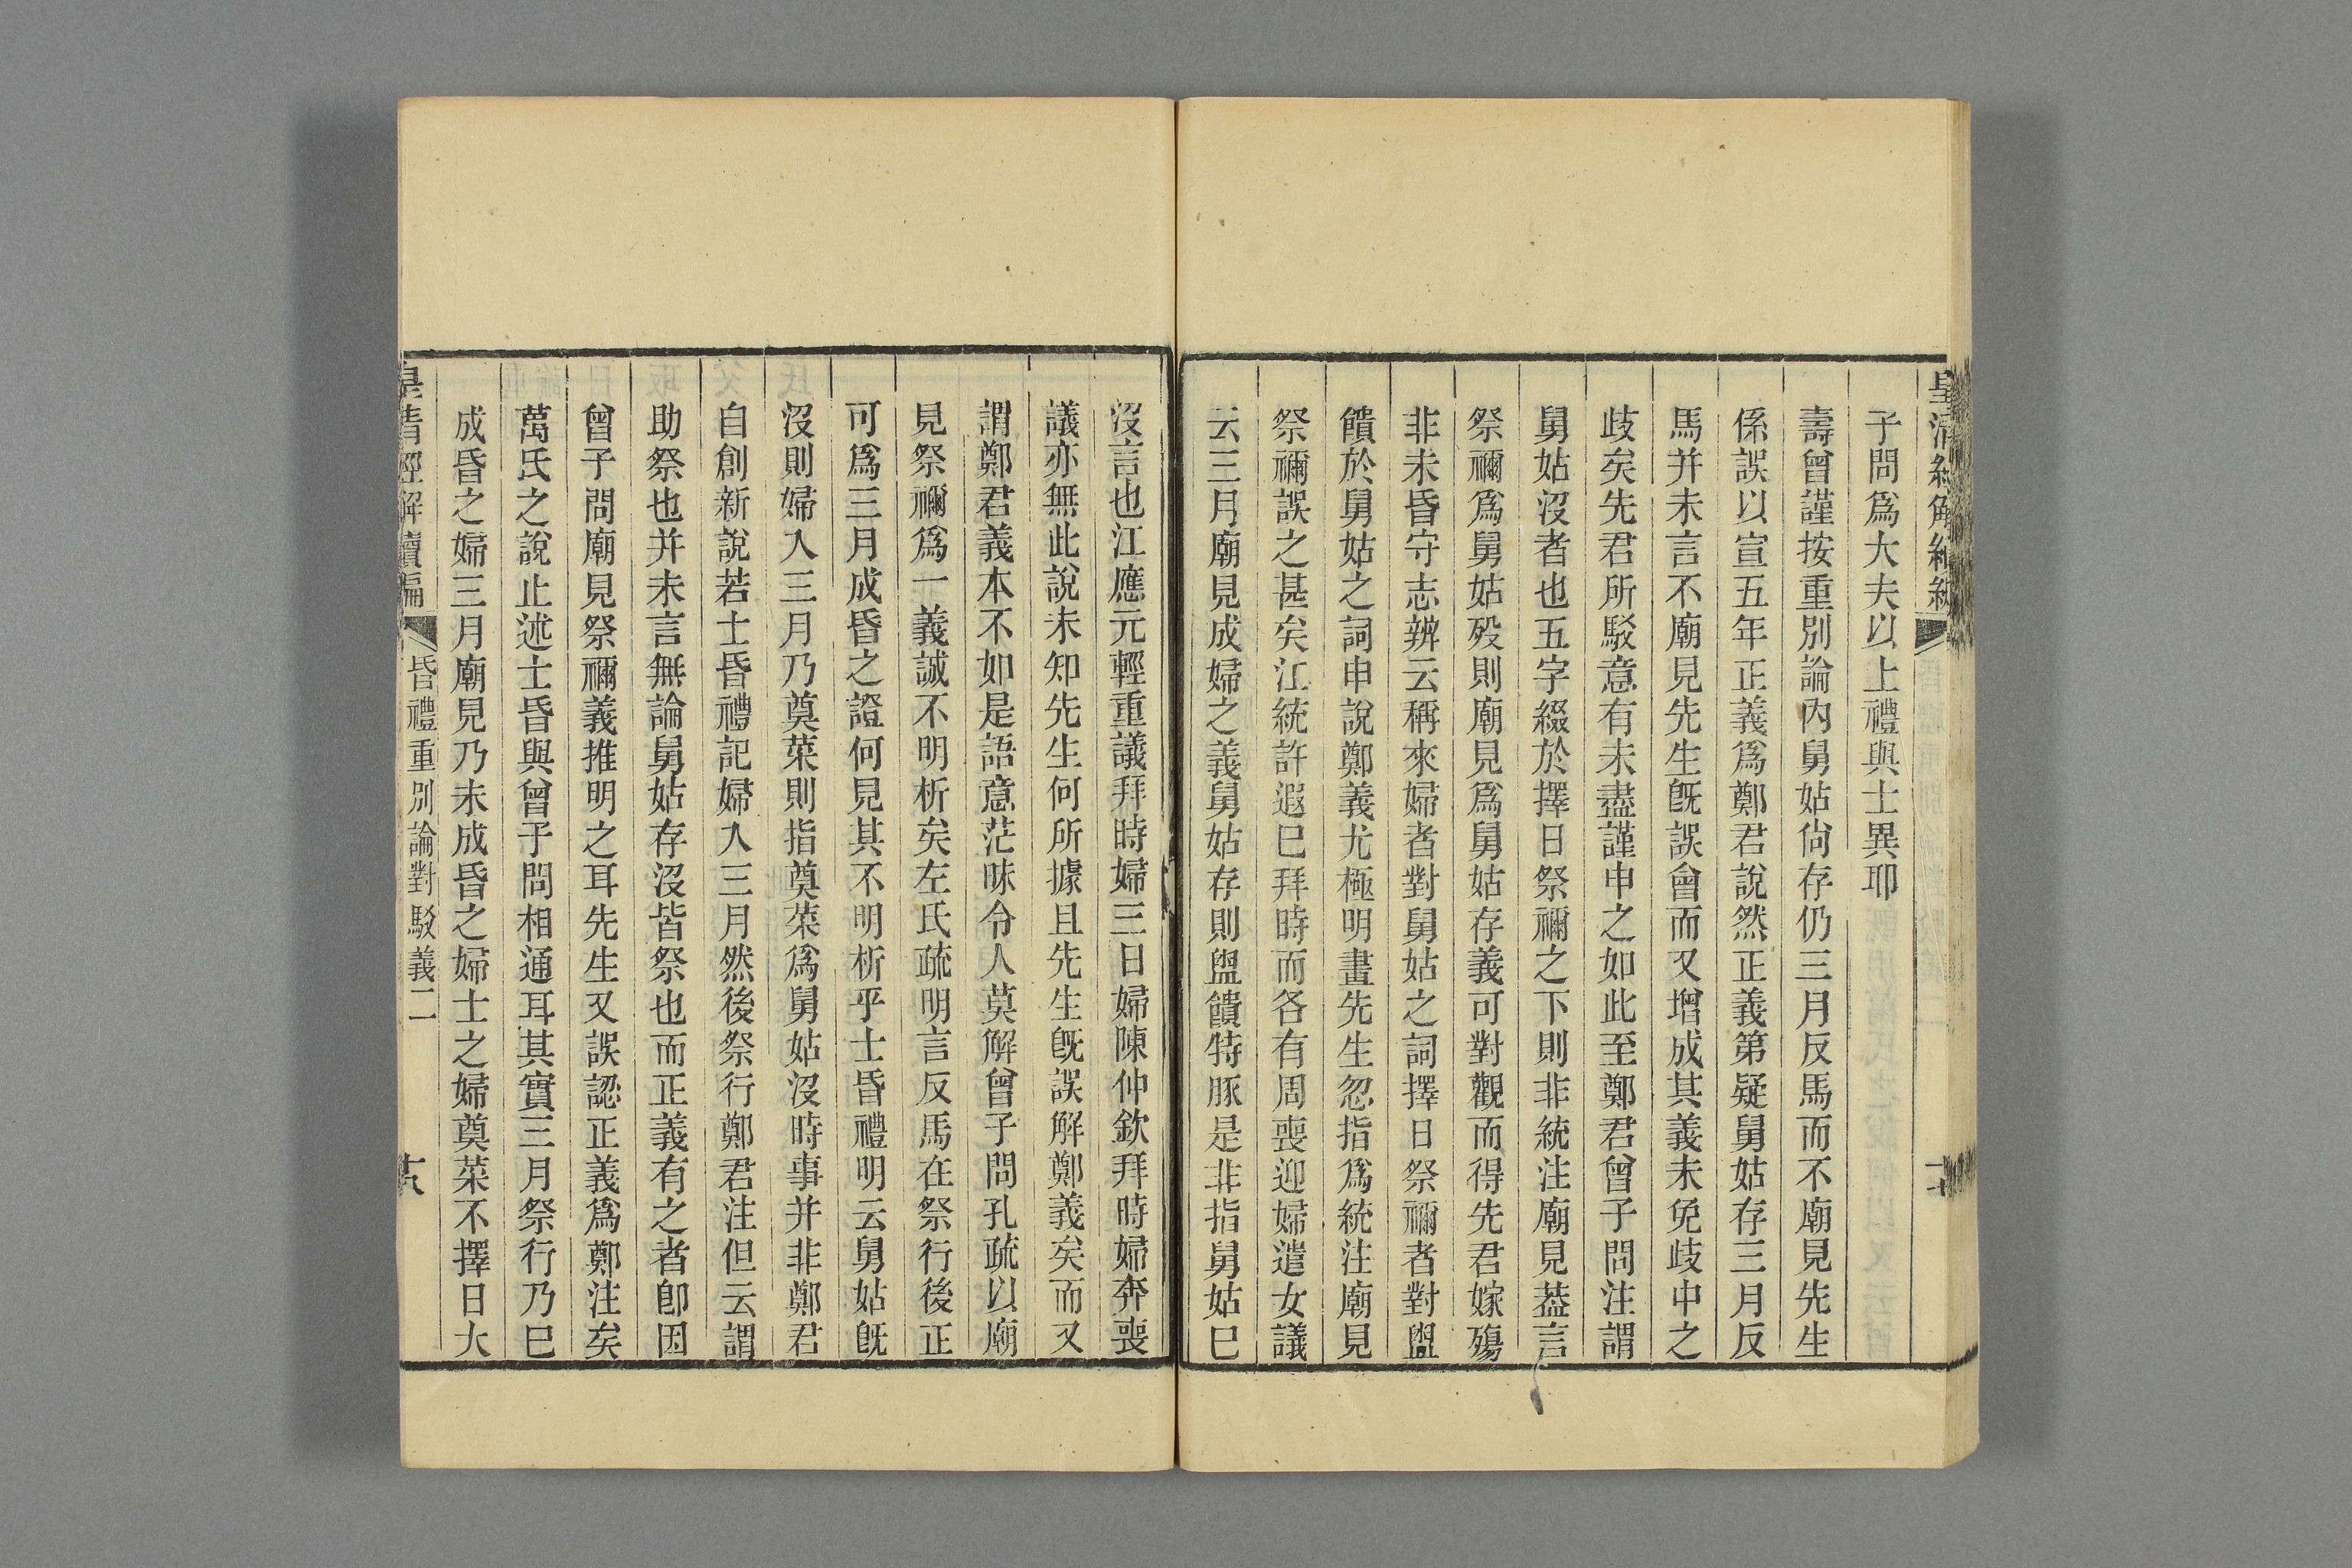 子問爲大夫以上禮與士異耶
壽曾謹按重別論內舅姑尙存仍三月反馬而不廟見先生
係誤以宣五年正義爲鄭君說然正義第疑舅姑存三月反
馬并未言不廟見先生旣誤會而又增成其義未免歧中之
歧矣先君所駁意有未盡謹申之如此至鄭君曾子問注謂
舅姑沒者也五字綴於擇日祭禰之下則非統注廟見葢言
祭禰爲舅姑歿則廟見爲舅姑存義可對觀而得先君嫁殤
非未昏守志辨云稱來婦者對舅姑之詞擇日祭禰者對盥
饋於舅姑之詞申說鄭義尤極明晝先生忽指爲統注廟見
祭禰誤之甚矣江統許遐巳拜時而各有周喪迎婦遣女議
云三月廟見成婦之義舅姑存則盥饋特豚是非指舅姑巳
沒言也江應元輕重議拜時婦三日婦陳仲欽拜時婦奔喪
議亦無此說未知先生何所據且先生旣誤解鄭義矣而又
謂鄭君義本不如是語意茫昧令人莫解曾子問孔疏以廟
見祭禰爲一義誠不明析矣左氏疏明言反馬在祭行後正
可爲三月成昏之證何見其不明析乎士昏禮明云舅姑旣
沒則婦入三月乃奠菜則指奠菜爲舅姑沒時事并非鄭君
自創新說若士昏禮記婦入三月然後祭行鄭君注但云謂
助祭也并未言無論舅姑存沒皆祭也而正義有之者卽因
曾子問廟見祭禰義推明之耳先生又誤認正義爲鄭注矣
萬氏之說止述士昏與曾子問相通耳其實三月祭行乃巳
成昏之婦三月廟見乃未成昏之婦士之婦奠菜不擇日大
皇清經解續編 昏禮重別論對駁義二